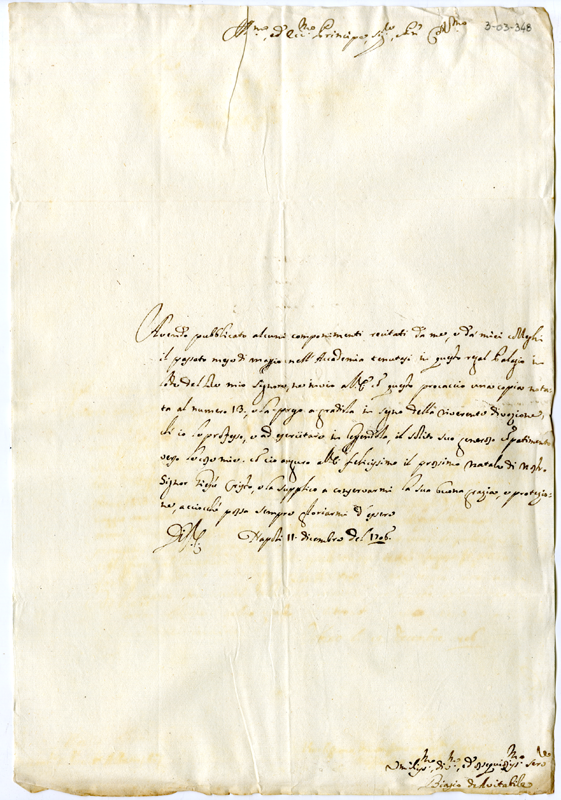 3-03-348
Avendo pubblicato alcuni componimenti recitati da me, e da miei Colleghi
il passato mese di maggio nell'Accademia tenutasi in questo regal Palagio in
del Re mio Signore, ne invio a questo procaccio una copia nota-
ta al numero 13, e la prego a gradirla in segno della riverente divozione,
ch'io le professo, e ad esercitare in leggendola, il solito suo generoso
verso le cose mie. Ed io auguro a felicissimo il prossimo natale di nostro
Signor Giesù Cristo, e la supplico a conservarmi la sua buona grazia, e protezio-
ne, acciocché possa sempre gloriarmi d'essere
Napoli 11. dicembre del 1706.
Biagio de Avitabile